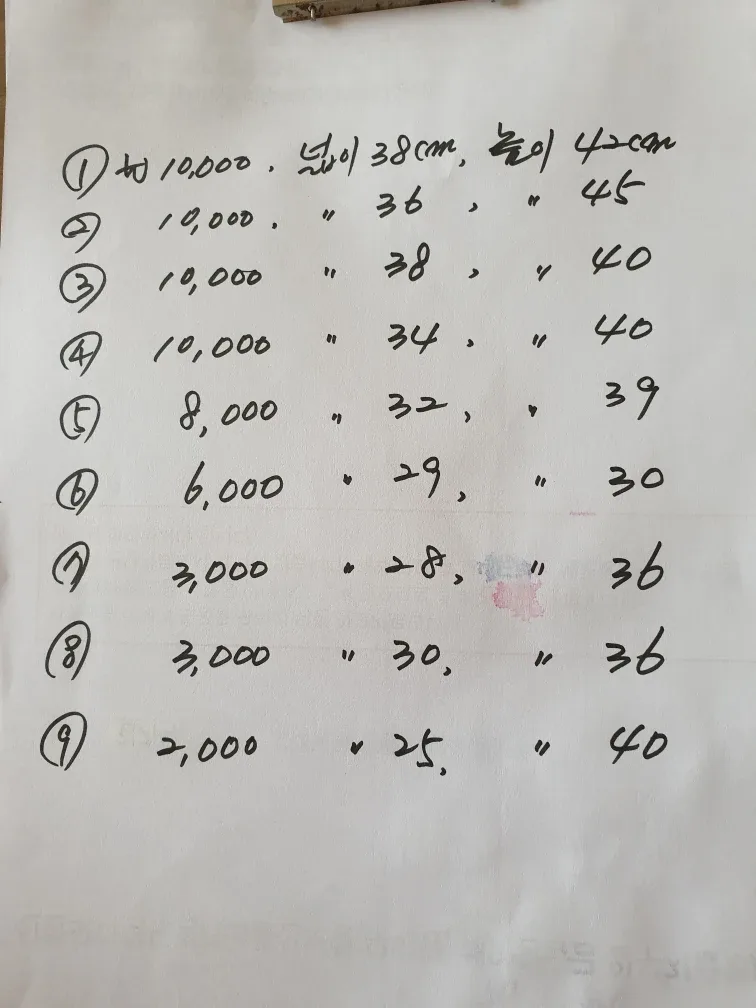 ① ₩10,000. 넓이 38cm, 높이 42cm
② 10,000. 〃 36, 〃 45
③ 10,000 〃 38, 〃 40
④ 10,000 〃 34, 〃 40
⑤ 8,000 〃 32, 〃 39
⑥ 6,000 〃 29, 〃 30
⑦ 3,000 〃 28, 〃 36
⑧ 3,000 〃 30, 〃 36
⑨ 2,000 〃 25, 〃 40